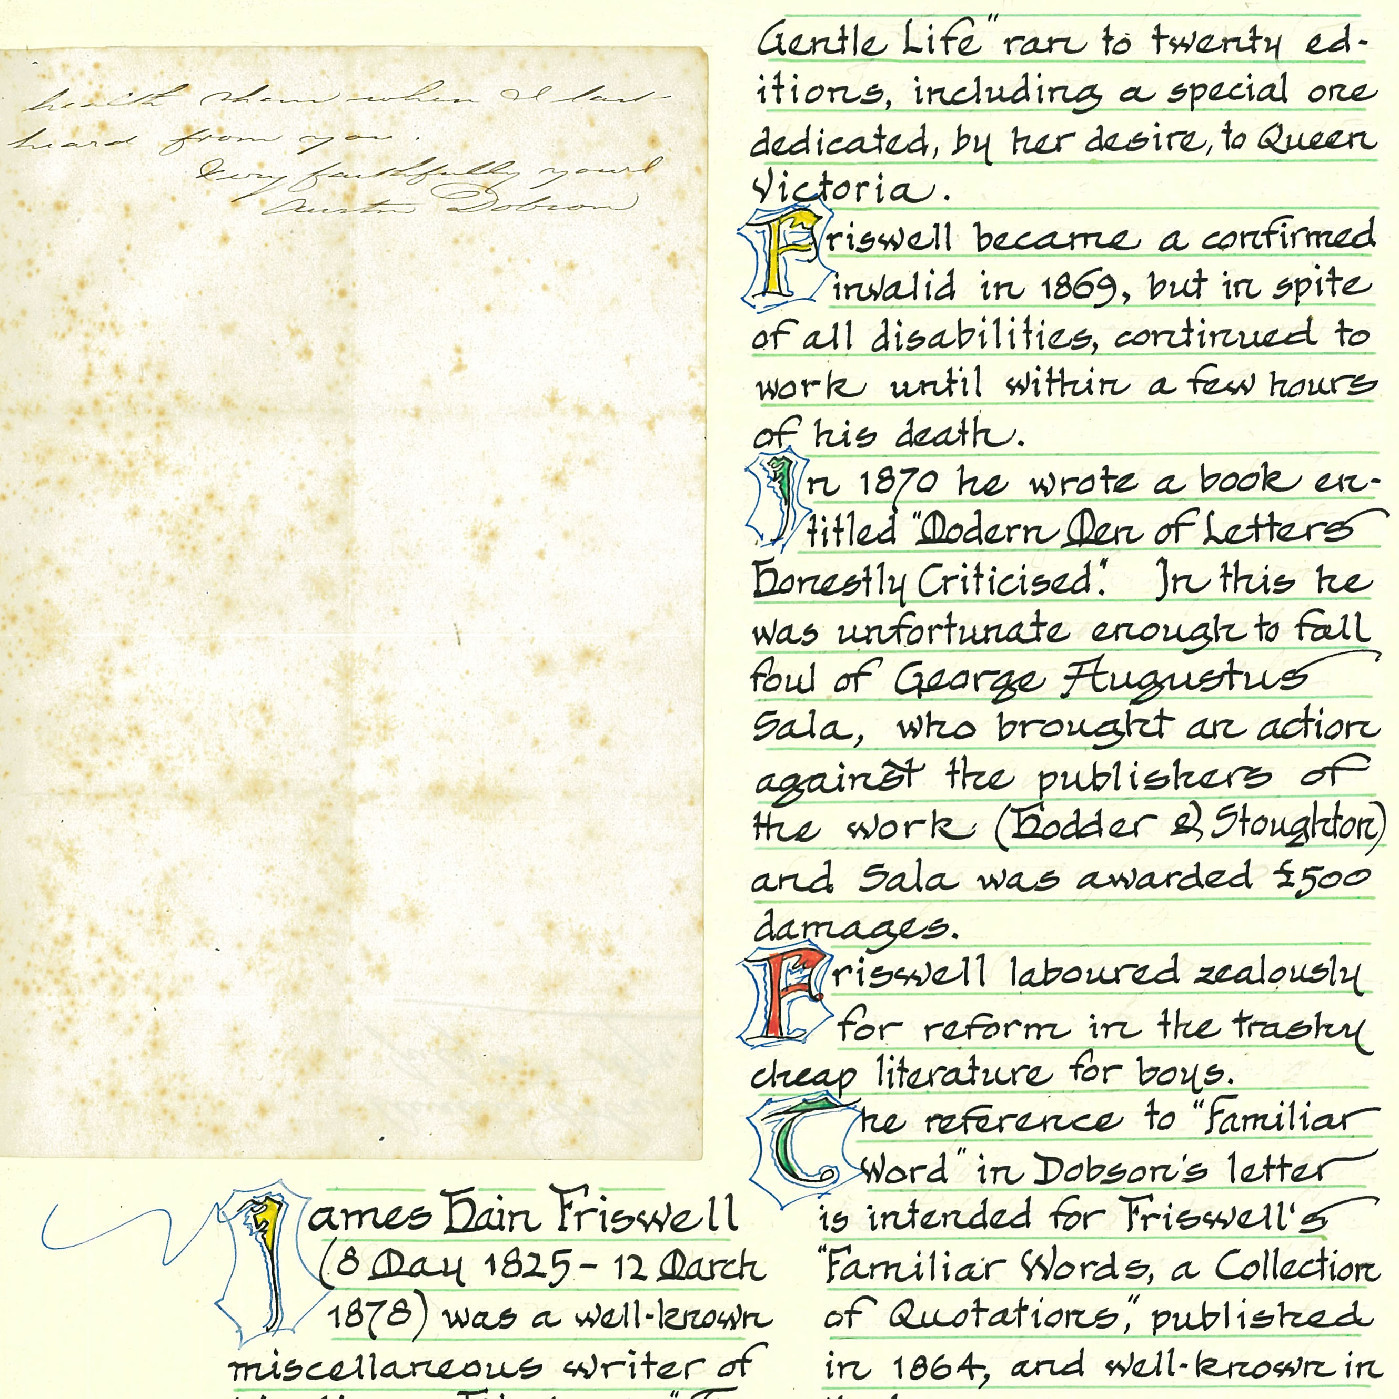 health than when I last
heard from you.
Very faithfully yours
Austin Dobson
James Hain Friswell
(8 May 1825 - 12 March
1878) was a well-known
miscellaneous writer of
Gentle Life" ran to twenty ed-
itions, including a special one
dedicated, by her desire, to Queen
Victoria.
Friswell became a confirmed
invalid in 1869, but in spite
of all disabilities, continued to
work until within a few hours
of his death.
In 1870 he wrote a book en-
titled "Modern Men of Letters
Honestly Criticised". In this he
was unfortunate enough to fall
foul of George Augustus
Sala, who brought an action
against the publishers of
the work (Hodder & Stoughton)
and Sala was awarded £500
damages.
Friswell laboured zealously
for reform in the trashy
cheap literature for boys.
The reference to "Familiar
Word" in Dobson's letter
is intended for Friswell's
"Familiar Words, a Collection
of Quotations", published
in 1864, and well-known in